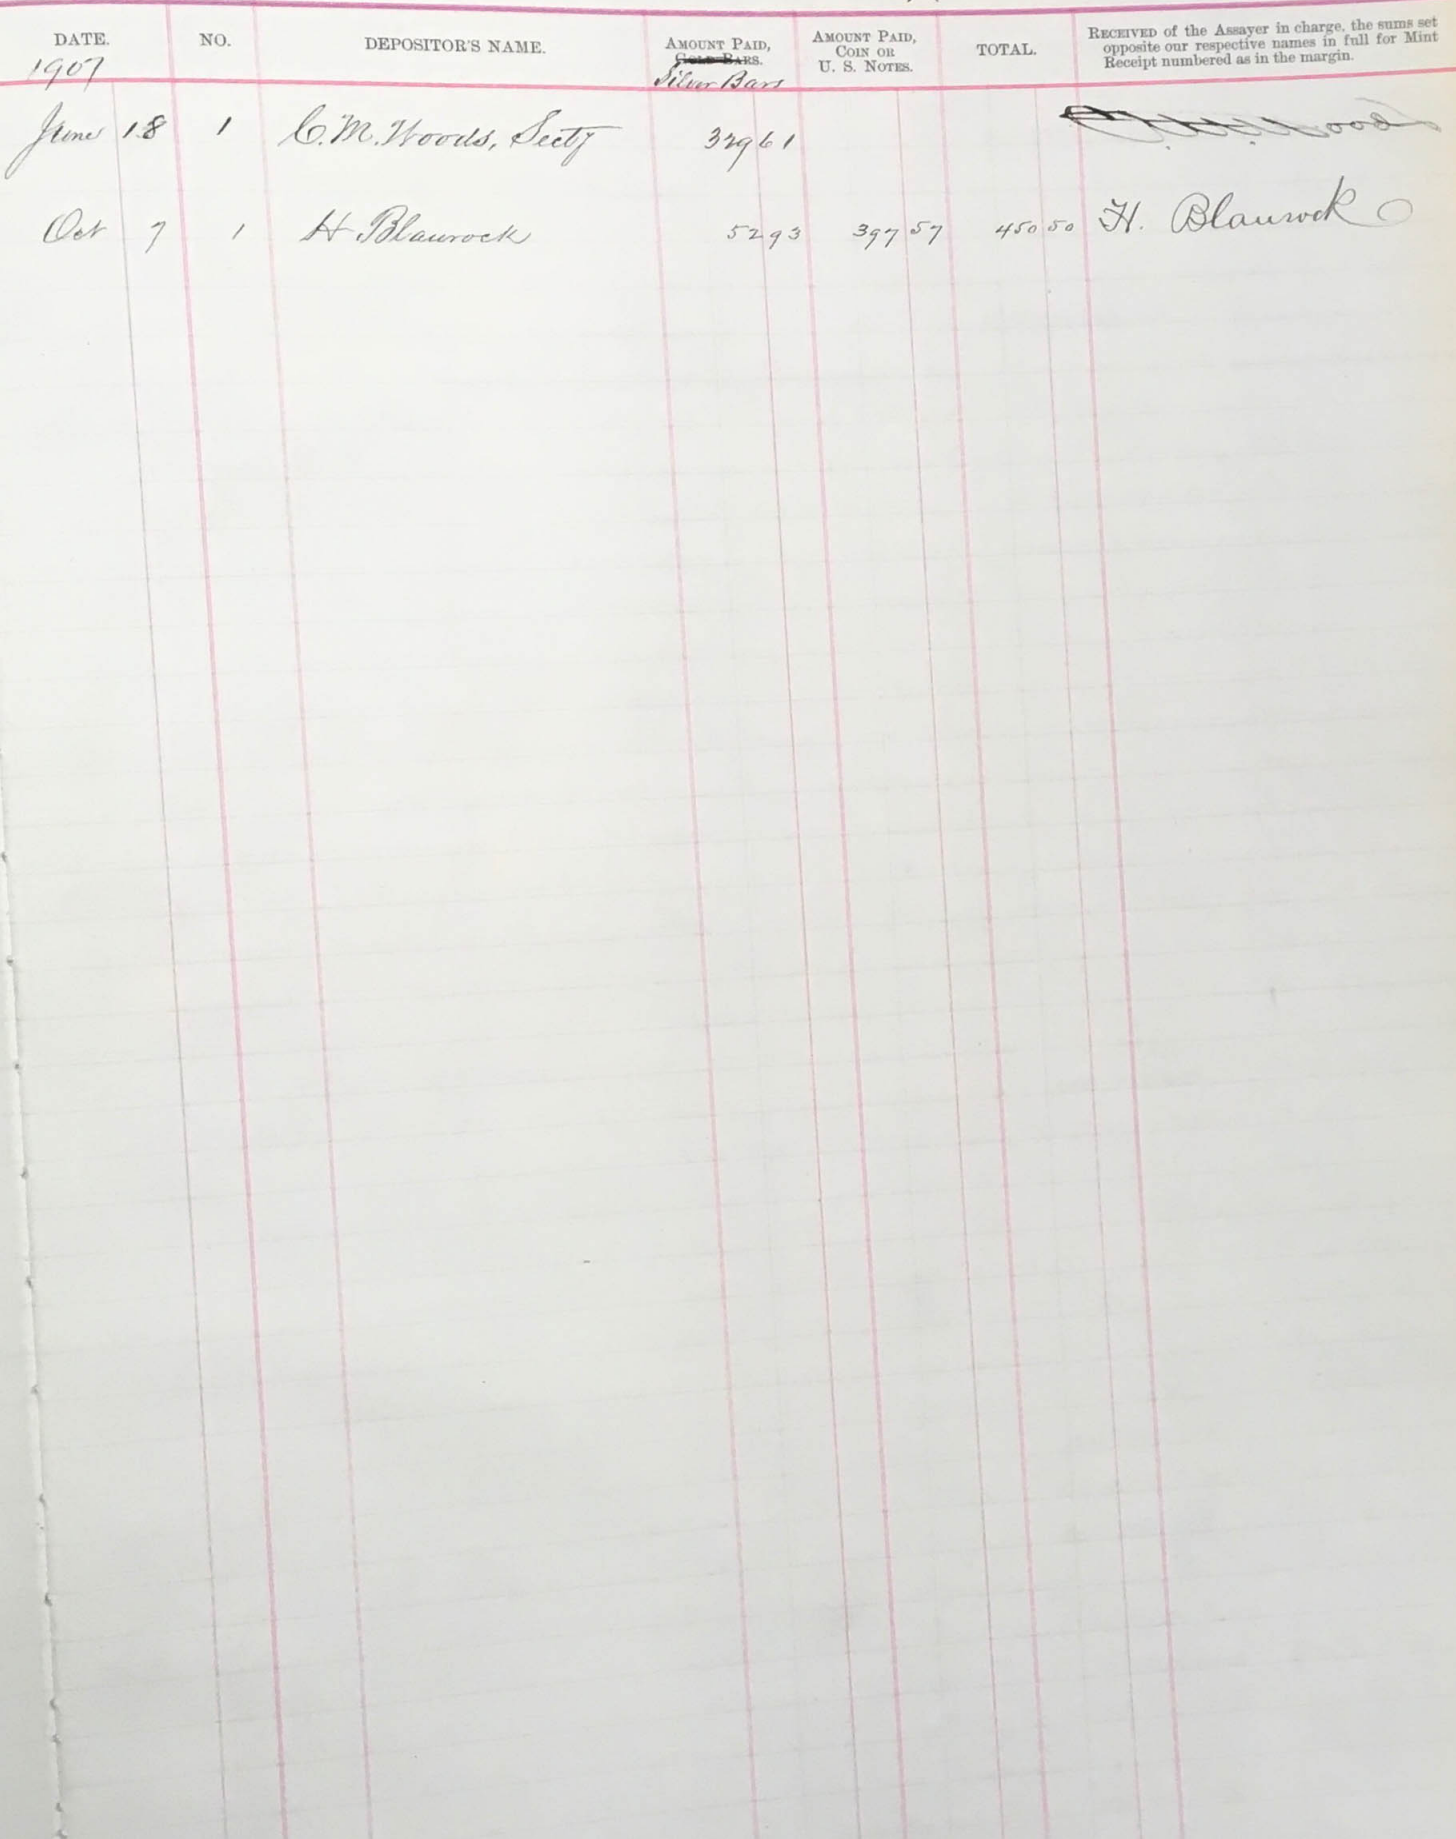 DATE. NO. DEPOSITOR'S NAME. AMOUNT PAID, GOLD BARS. AMOUNT PAID, COIN OR U. S. NOTES. TOTAL. RECEIVED of the Assayer in charge, the sums set opposite our respective names in full for Mint Receipt numbered as in the margin.
1907 Silver Bars
June 18 1 C. M. Woods, Secty 329 61
Oct 7 1 H Blaurock 52 93 397 57 450 50 H. Blaurock